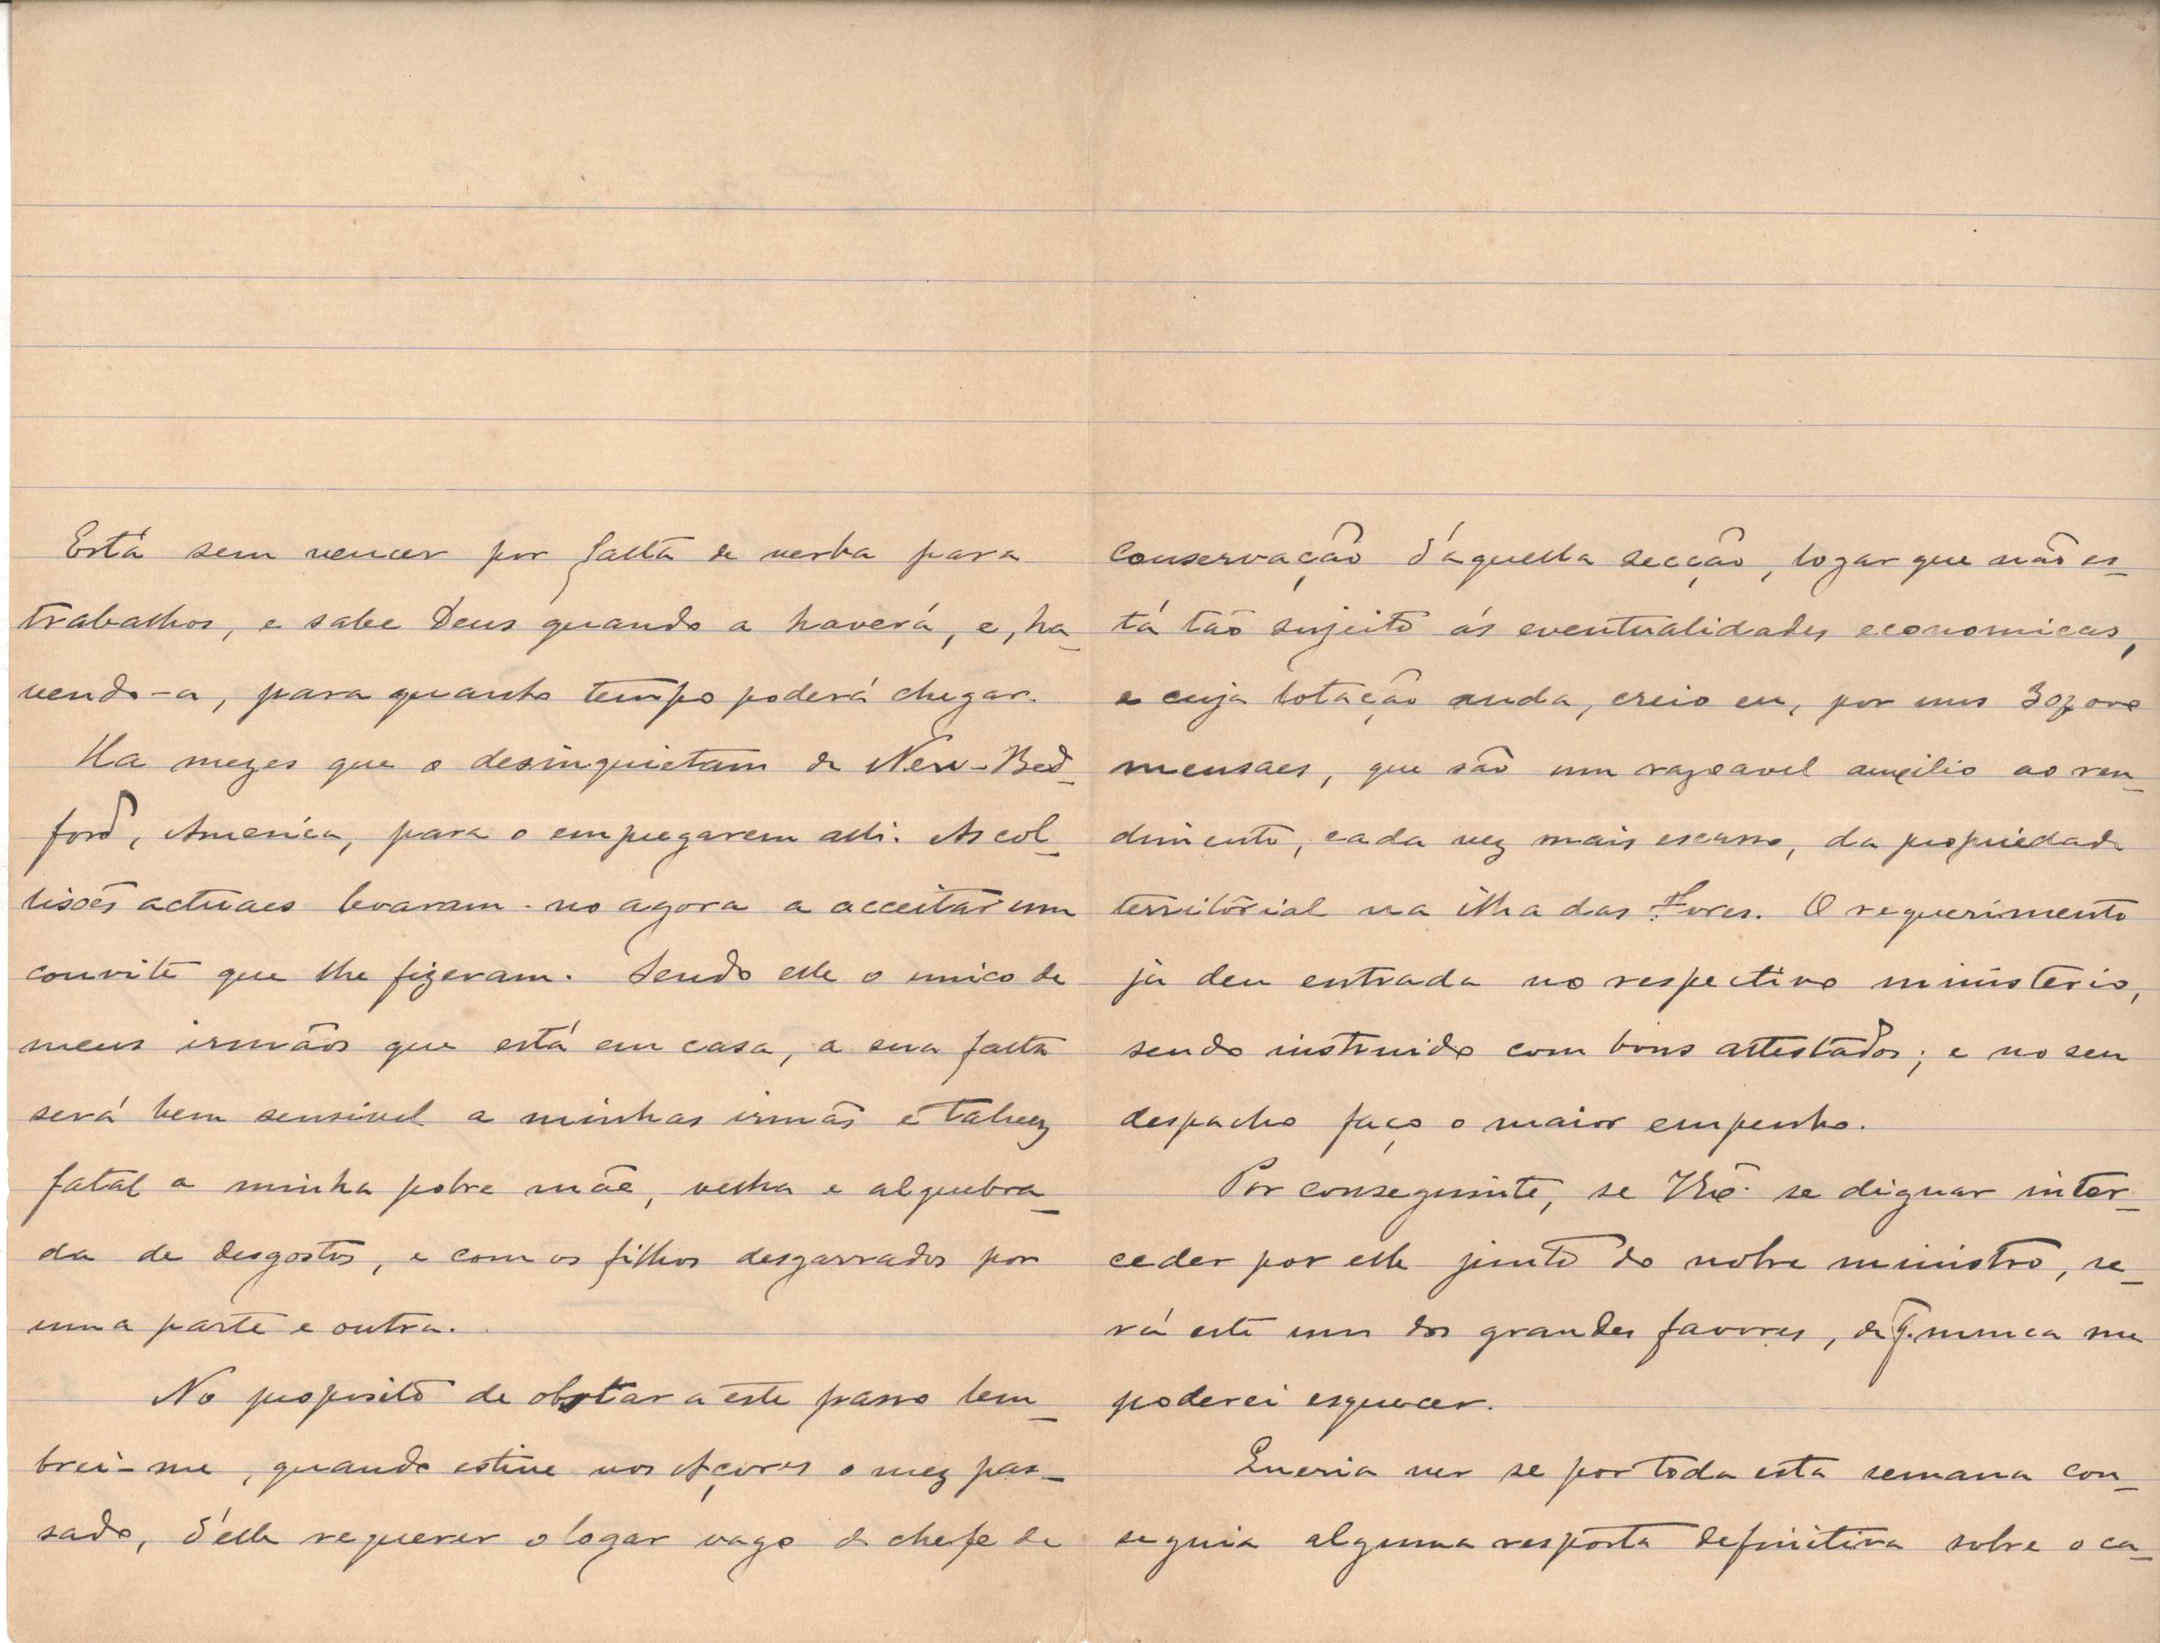 Está sem vencer por falta de verba para
trabalhos, e sabe Deus quando a haverá, e, ha-
vendo-a, para quanto tempo poderá chegar.
Ha mezes que o desinquietam de New-Bed-
ford, America, para o empregarem alli. As col-
lisões actuaes levaram-no agora a acceitar um
convite que lhe fizeram. Sendo elle o unico de
meus irmãos que está em casa, a sua falta
será bem sensivel a minhas irmãs e talvez
fatal a minha pobre mãe, velha e alquebra-
da de desgostos, e com os filhos desgarrados por
uma parte e outra.
No proposito de obstar a este passo lem-
brei-me, quando estive nos Açores o mez pas-
sado, d'elle requerer o logar vago de chefe de
conservação d'aquella secção, logar que não es-
tá tão sujeito ás eventualidades economicas,
e cuja lotação anda, creio eu, por uns
mensaes, que são um razoavel auxilio ao ren-
dimento, cada vez mais escasso, da propriedade
territorial na ilha das Flores. O requerimento
já deu entrada no respectivo ministerio,
sendo instruido com bons attestados; e no seu
despacho faço o maior empenho.
Por conseguinte, se V. Exª se dignar inter-
ceder por elle junto do nobre ministro, se-
rá este um dos grandes favores, de q. nunca me
poderei esquecer.
Queria ver se por toda esta semana con-
seguia alguma resposta definitiva sobre o ca-